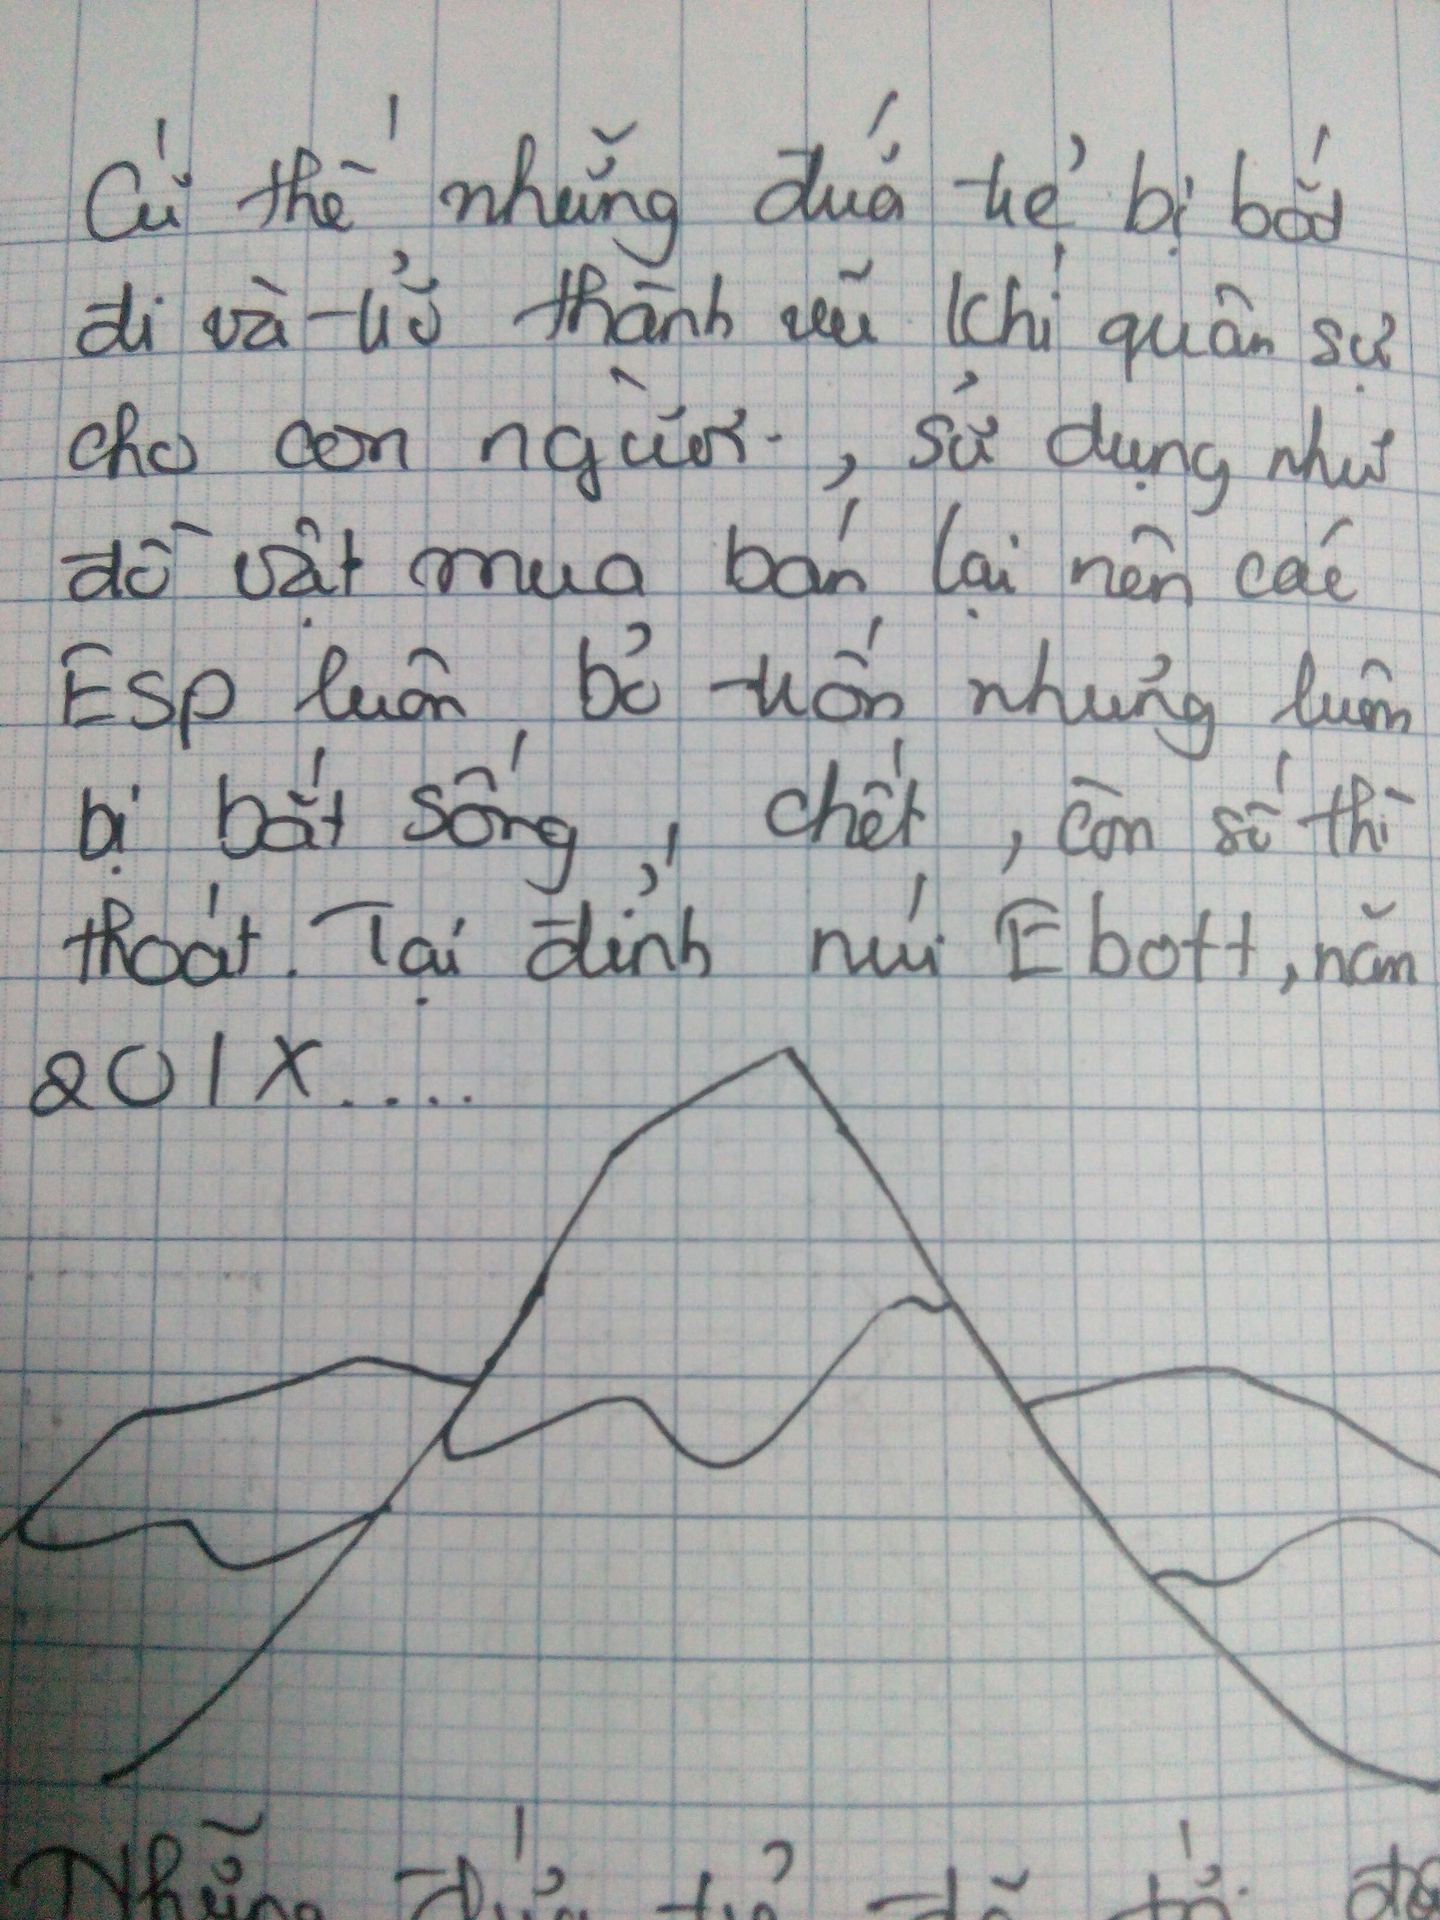 Cứ thế những đứa trẻ bị bắt
đi và trở thành vũ khí quân sự
cho con người, sử dụng như
đồ vật mua bán lại nên các
ESP luôn bỏ trốn nhưng luôn
bị bắt sống, chết, còn số thì
thoát. Tại đỉnh núi Ebott, năm
201X.....
Những đứa trẻ đã